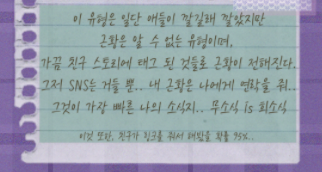 이 유형은 일단 애들이 깔길래 깔았지만
근황은 알 수 없는 유형이며,
가끔 친구 스토리에 태그 된 것들로 근황이 전해진다.
그저 SNS는 거들 뿐.. 내 근황은 나에게 연락을 줘..
그것이 가장 빠른 나의 소식지.. 무소식 is 희소식
이것 또한, 친구가 링크를 줘서 해봤을 확률 95%..